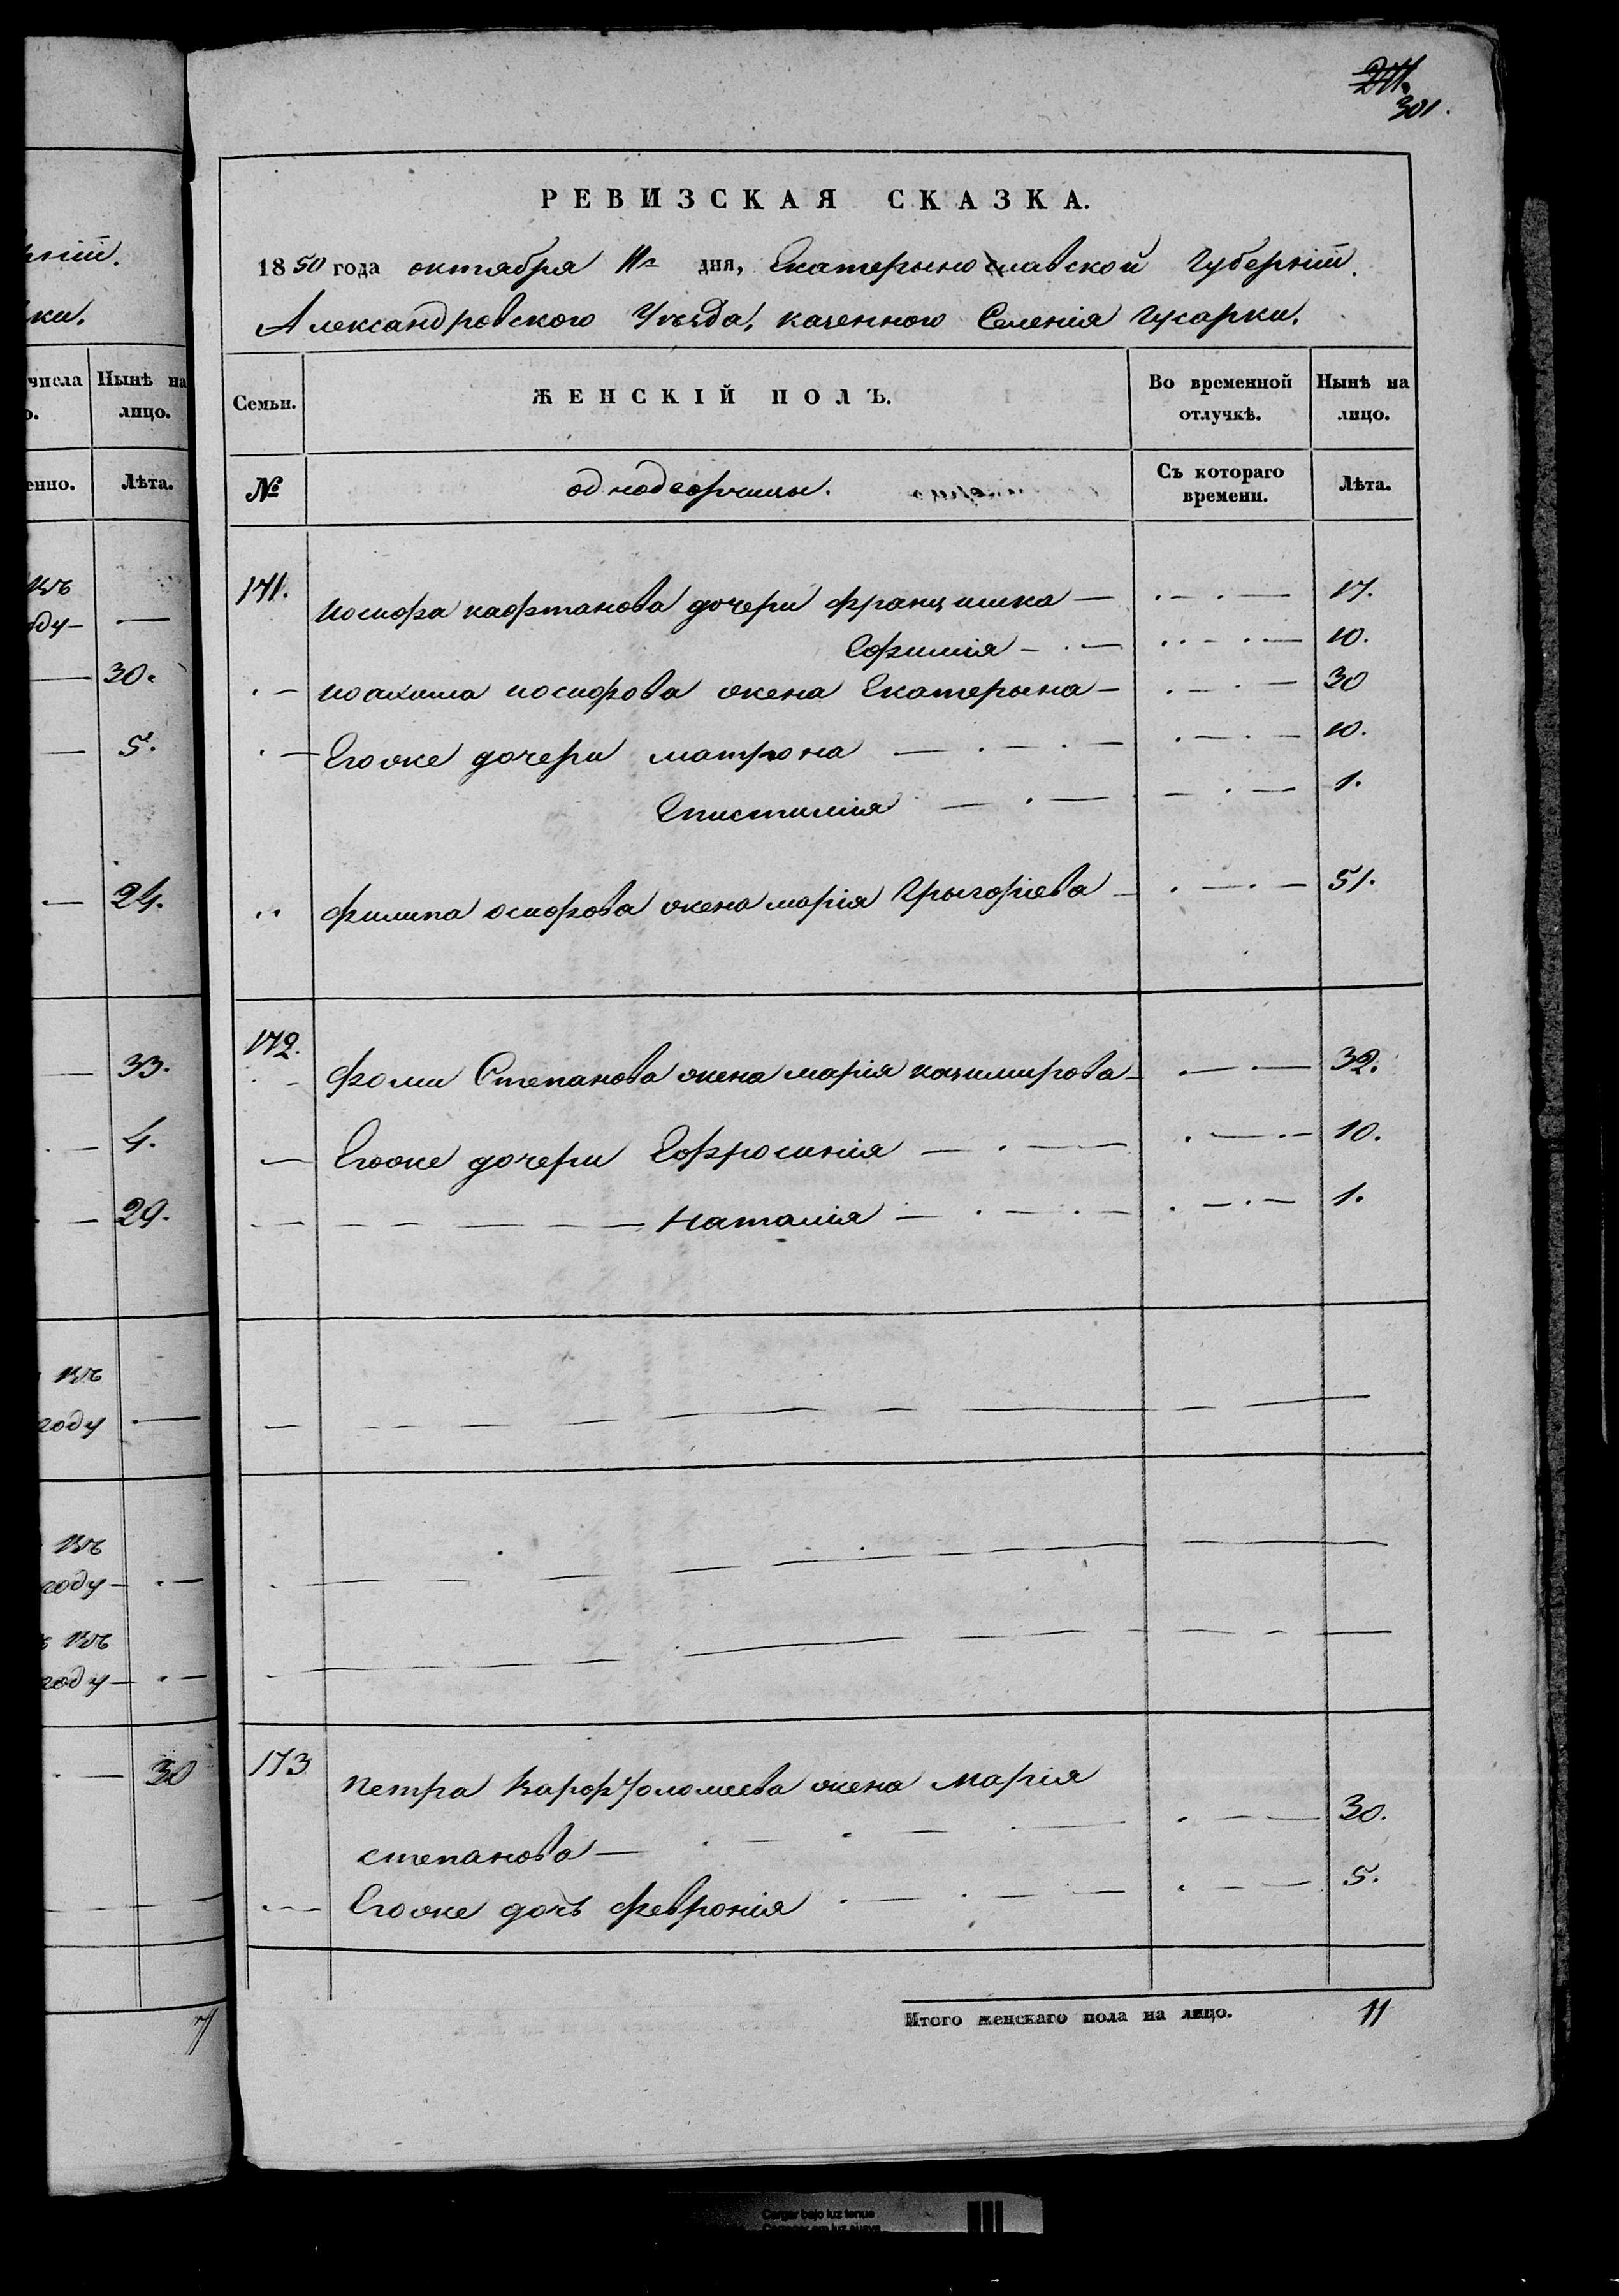 301.
РЕВИЗСКАЯ СКАЗКА.
1850 года октября 11го дня, Екатерынославской Губерніи.
Александровского Уезда, казенного Селенія Гусарки.
Семьи.
ЖЕНСКІЙ ПОЛЪ.
Во временной отлучкѣ.
Нынѣ на лицо.
№
однодворчицы.
Съ котораго времени.
Лѣта.
171. Иосифа кафтанова дочери францишка — 17.
Ефимія — 10.
иоахима иосифова жена Екатерына — 30
Егоже дочери матрона — 10.
Епистимія — 1.
филипа осифова жена марія Грыгоріева — 51.
172. фоми Степанова жена марія казимирова — 32.
Егоже дочери Ефросинія — 10.
Наталія — 1.
173 петра Варфоломеева жена Марія
степанова — 30.
Егоже дочь февронія — 5.
Итого женскаго пола на лицо. 11
рніи.
ки.
числа
Нынѣ на
о.
лицо.
енно.
Лѣта.
въ
оду —
30.
5.
24.
33.
4.
29.
въ
году —
въ
году —
въ
году —
30
7
Cargar bajo luz tenue